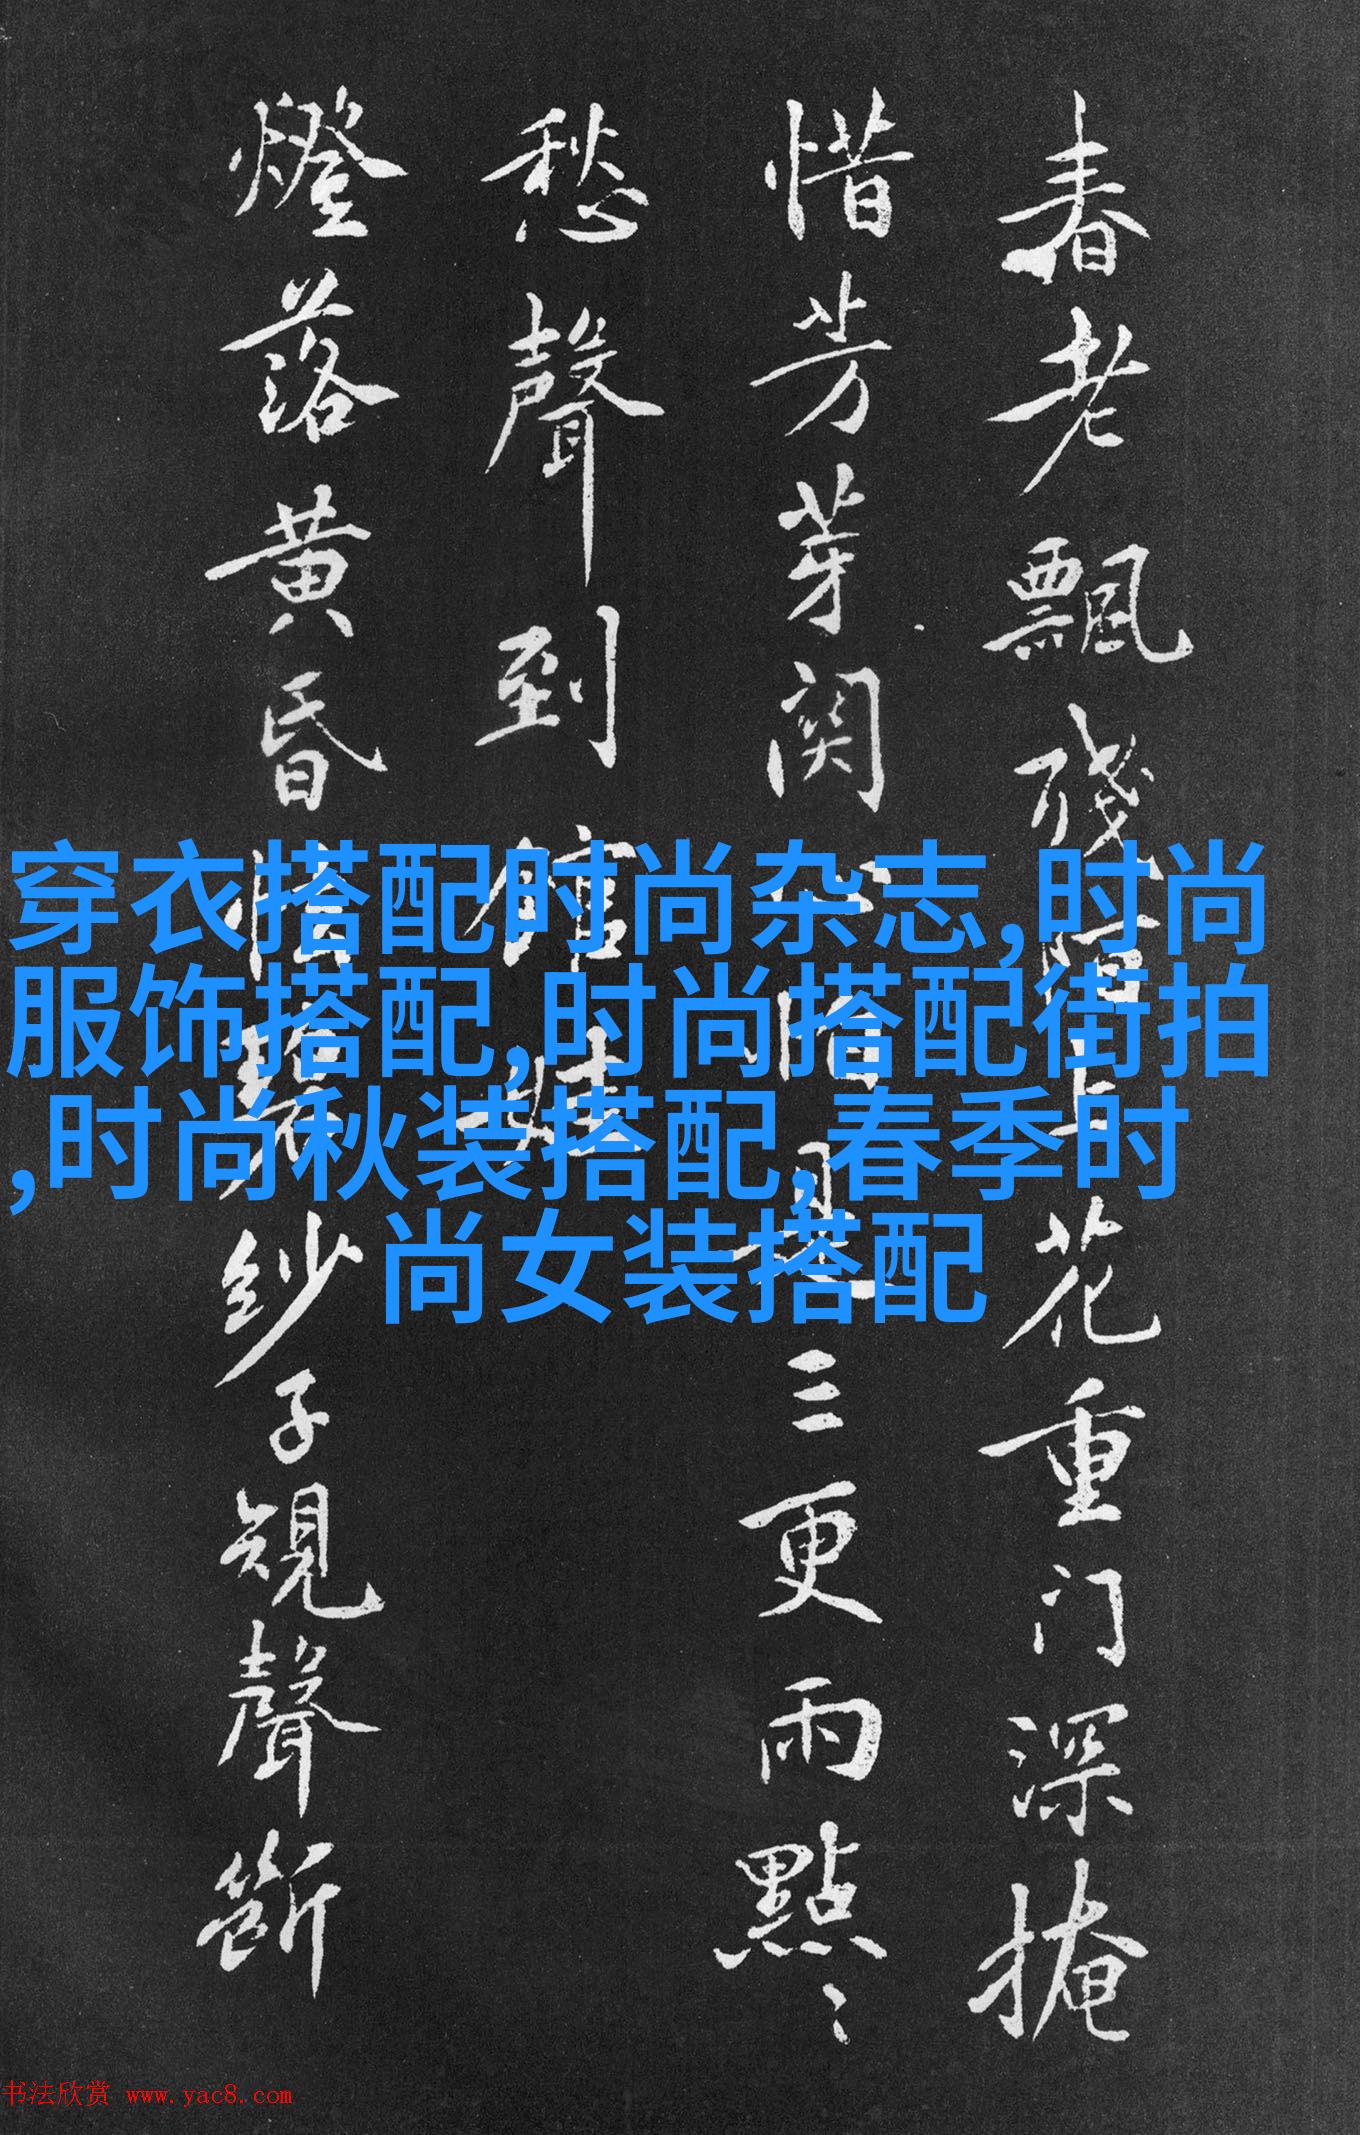 春老飄殘陌上花重门深掩
惜芳芽関三更雨點〻
愁聲到館娃
燈落黄昏惜碧紗子規聲斷
穿衣搭配时尚杂志,时尚
服饰搭配,时尚搭配街拍
,时尚秋装搭配,春季时
尚女装搭配
书法欣赏 www.yac8.com